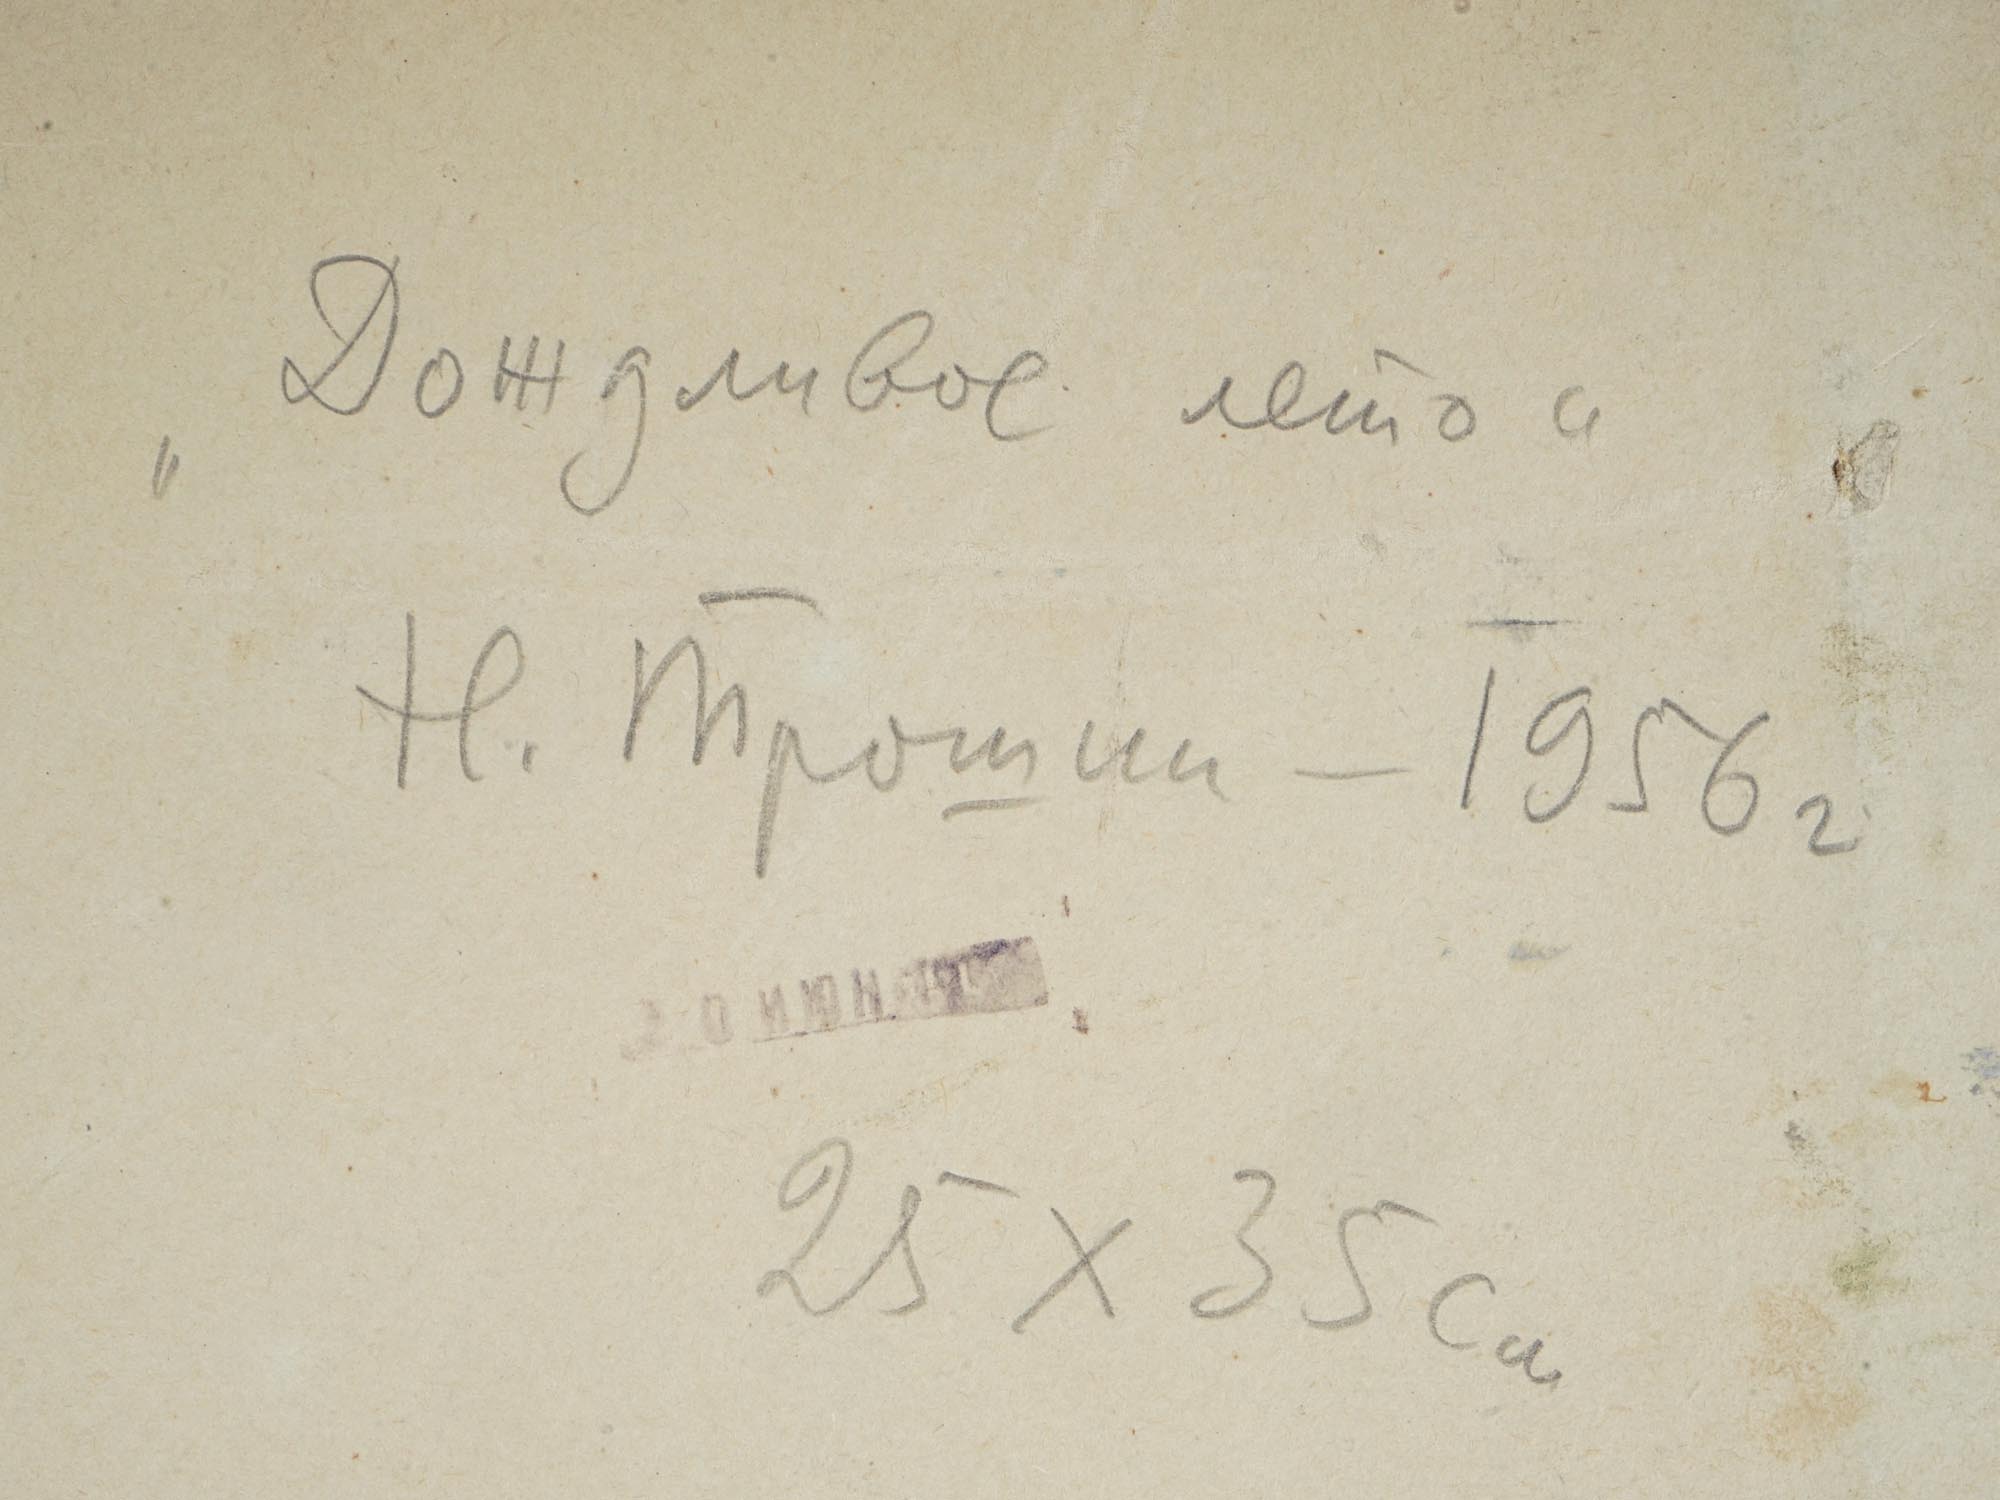 „Дождливое лето“
Н. Трошин — 1956 г
20 ИЮН
25 х 35 см